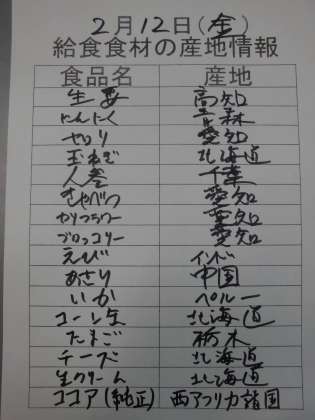 2月12日(金)
給食食材の産地情報
食品名 産地
生姜 高知
にんにく 青森
セロリ 愛知
玉ねぎ 北海道
人参 千葉
きゃべつ 愛知
カリフラワー 愛知
ブロッコリー 愛知
えび インド
あさり 中国
いか ペルー
コーン缶 北海道
たまご 栃木
チーズ 北海道
生クリーム 北海道
ココア(純正) 西アフリカ諸国